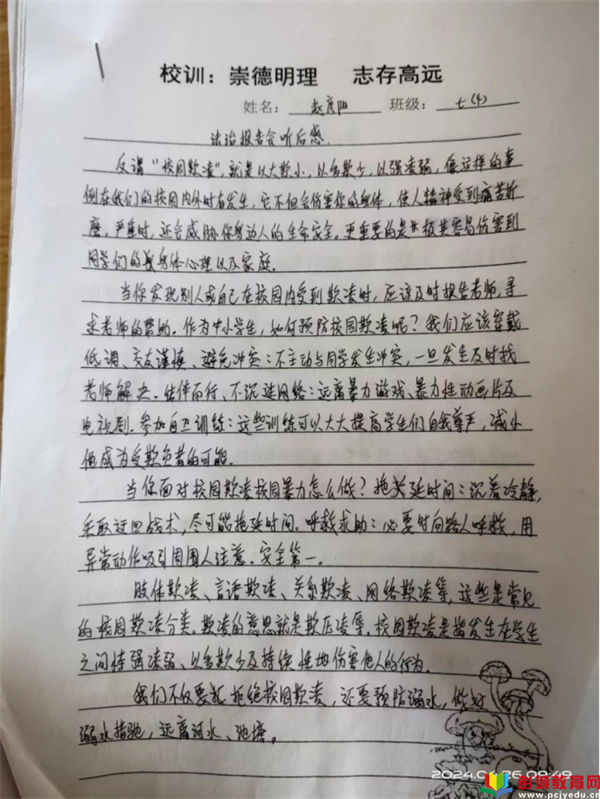 校训：崇德明理 志存高远
姓名：赵彦阳 班级：七(4)
法治报告会听后感
反谓“校园欺凌”，就是以大欺小，以多欺少，以强凌弱，像这样的事
例在我们的校园内外时有发生，它不但会伤害你的身体，使人精神受到痛苦折
磨，严重时，还会威胁你身边人的生命安全。更重要的是极其容易伤害到
同学们的身体心理以及家庭。
当你发现别人或自己在校园内受到欺凌时，应该及时报告老师，寻
求老师的帮助。作为中小学生，如何预防校园欺凌呢？我们应该穿戴
低调、交友谨慎、避免冲突：不主动与同学发生冲突，一旦发生及时找
老师解决。结伴而行、不沉迷网络：远离暴力游戏、暴力性动画片及
电视剧。参加自卫训练：这些训练可以大大提高学生们自我尊严，减小
他成为受欺负者的可能。
当你面对校园欺凌校园暴力怎么做？拖延时间：沉着冷静，
采取迂回战术，尽可能拖延时间。呼救求助：必要时向路人呼救，用
异常动作吸引周围人注意。安全第一。
肢体欺凌、言语欺凌、关系欺凌、网络欺凌等，这些是常见
的校园欺凌分类。欺凌的意思就是欺压凌辱。校园欺凌是指发生在学生
之间恃强凌弱、以多欺少及持续性地伤害他人的行为。
我们不仅要拒绝校园欺凌，还要预防溺水，做好
溺水措施，远离河水、池塘。
2024.0 26 09:49
教育网
www.pcjyedu.cn